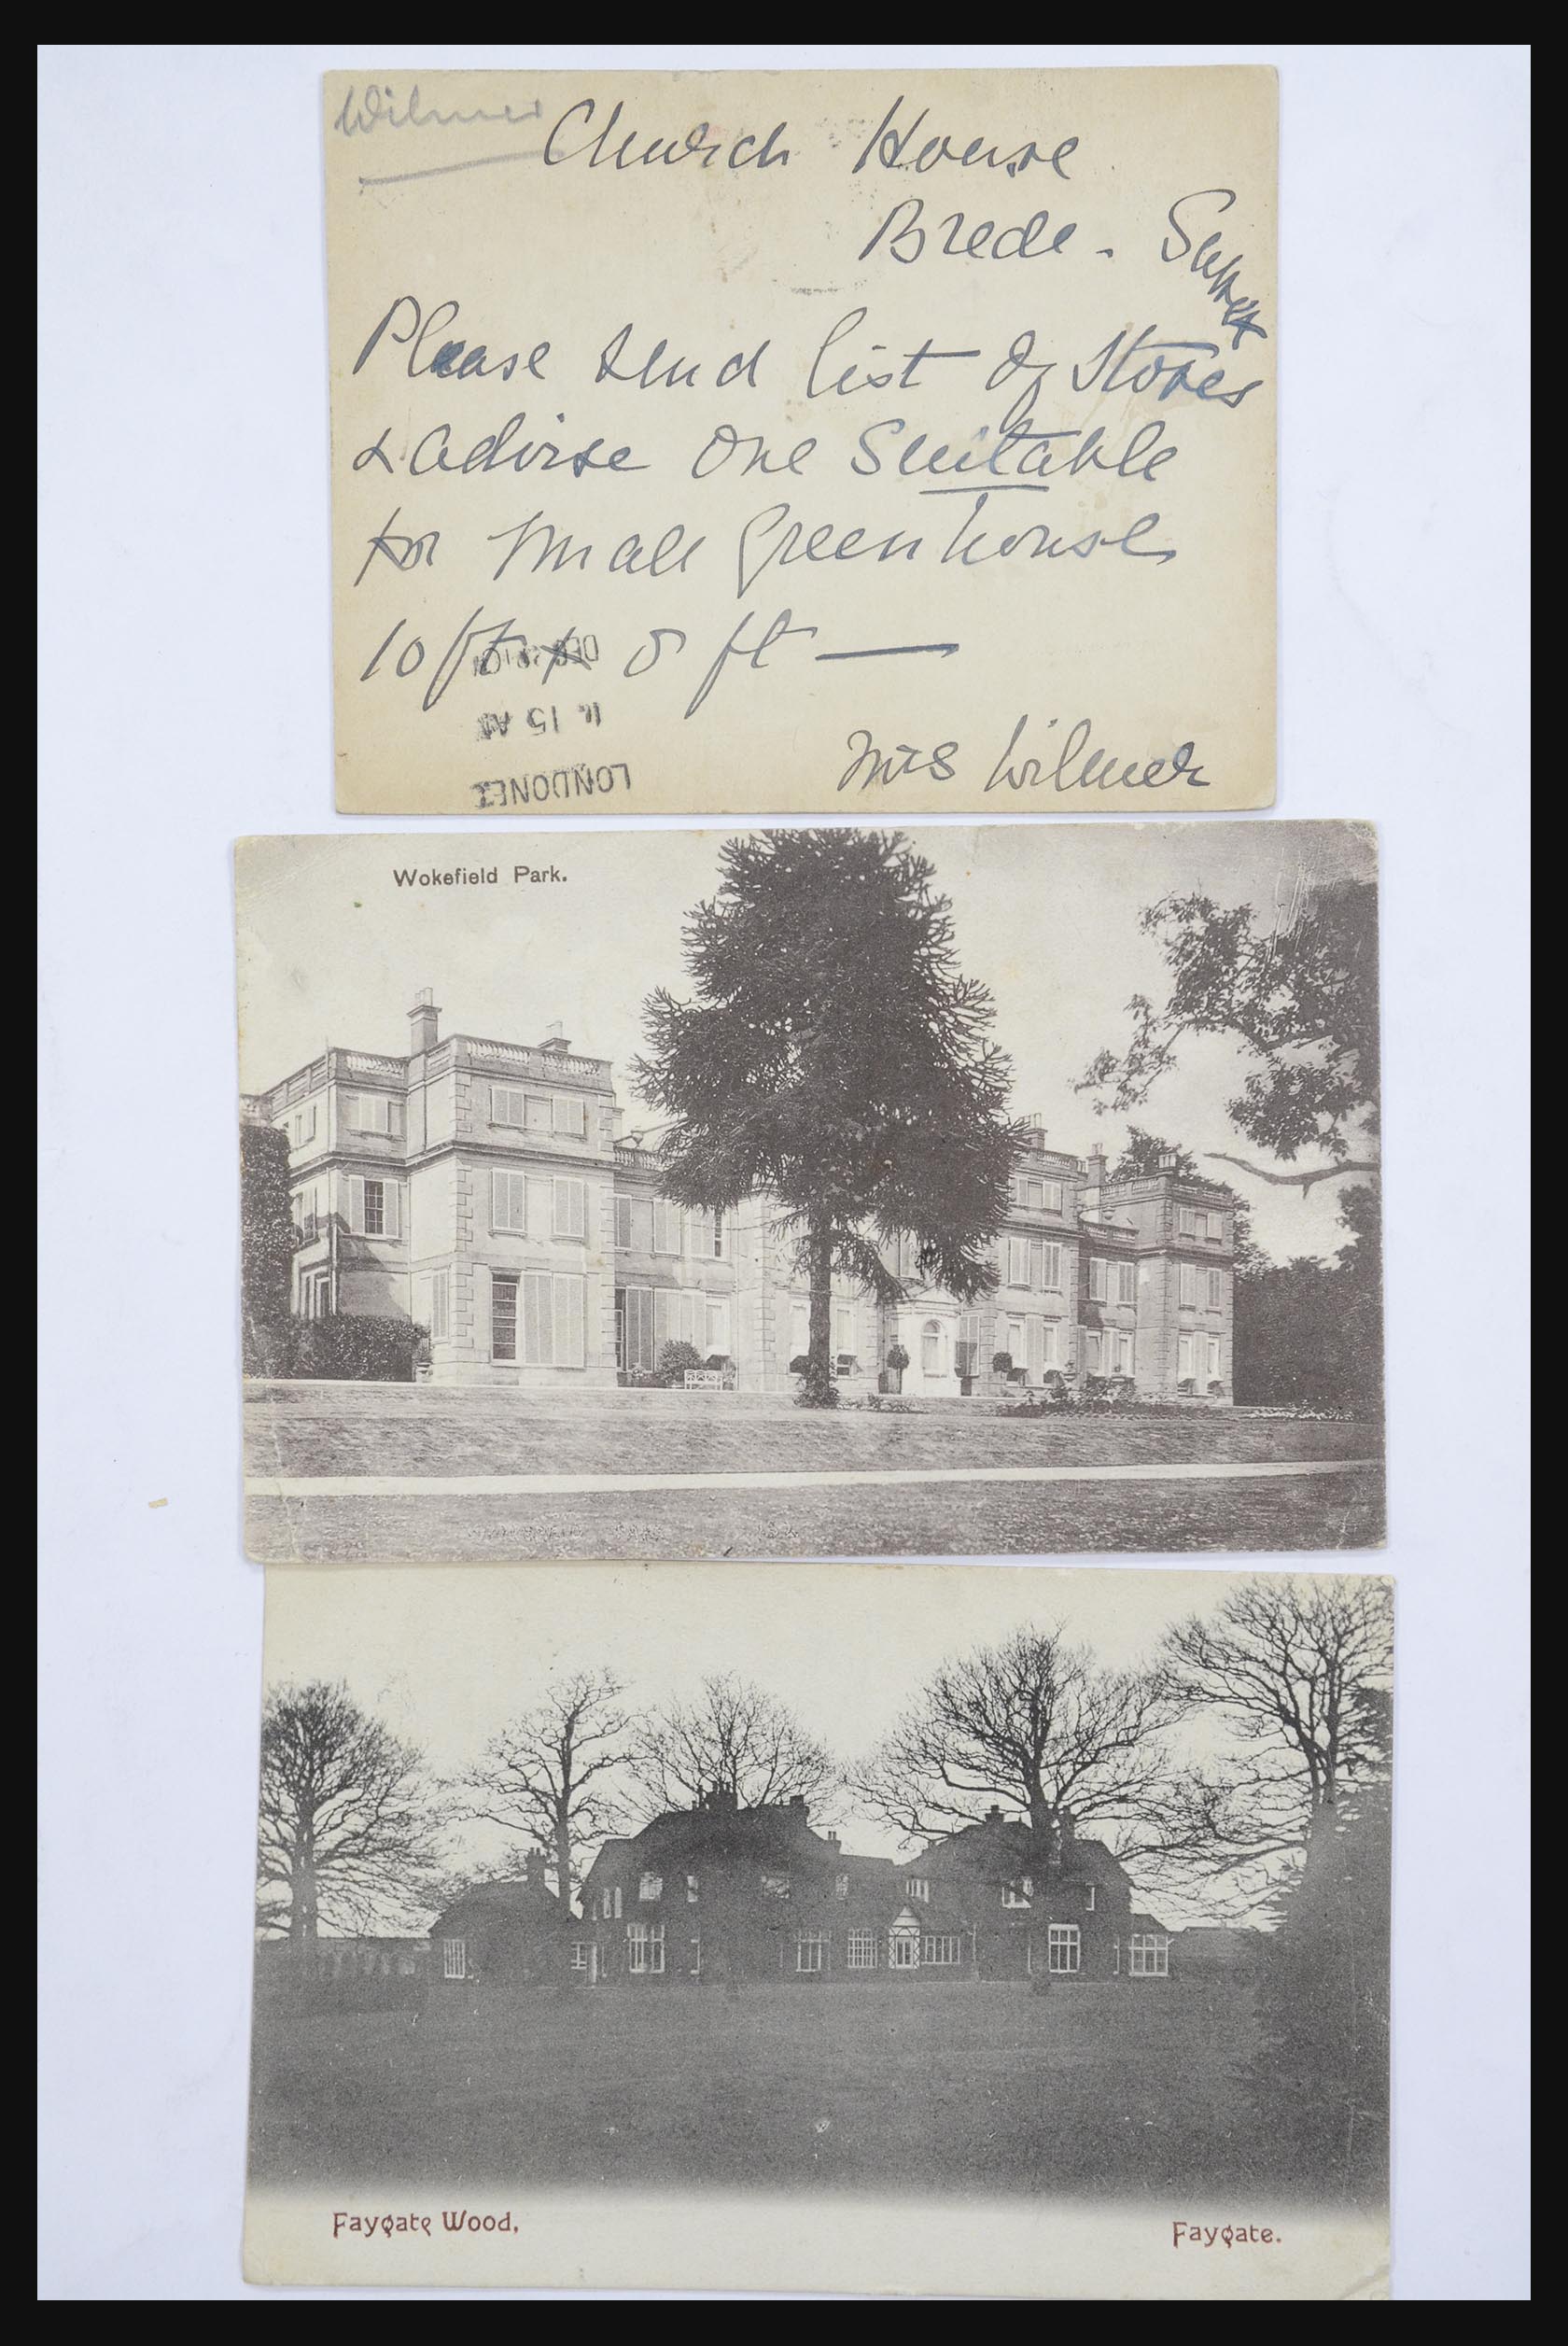 Wilmer
Church House
Brede - Sussex
Please send list of Stoves
& advise one Suitable
for small Greenhouse
10 ft x 8 ft —
Mrs Wilmer
DEC
11. 15 AM
LONDON
Wokefield Park.
Faygate Wood,
Faygate.